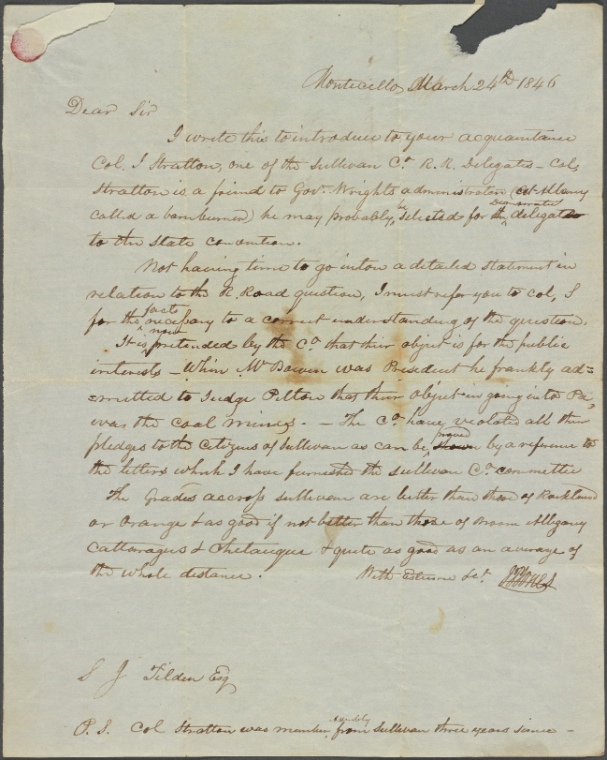 Monticello March 24th 1846
Dear Sir
I write this to introduce to your acquaintance
Col. J Stratton, one of the Sullivan Co R. R. Delegates - Col,
Stratton is a friend to Gov. Wrights administration (at Albany
called a barnburner) he may probably be selected for the Democratic delegate
to the State convention.
Not having time to go into a detailed statement in
relation to the R. Road question, I must refer you to Col, S
for the facts necessary to a correct understanding of the question.
It is now pretended by the Co that their object is for the public
interests - When Mr Bowen was President he frankly ad=
=mitted to Judge Pelton that their object in going into Pa,
was the coal mines. - The Co. have violated all their
pledges to the Citizens of Sullivan as can be proved by a reference to
the letters which I have furnished the Sullivan Co. committee
The Grades accross Sullivan are better than those of Rockland
or Orange & as good if not better than those of Broom Allegany
Cattaragus & Chetauque & quite as good as an average of
the whole distance. With Esteeme &ct
S J Tilden Esq
P. S. Col Stratton was member assembly from Sullivan three years since -